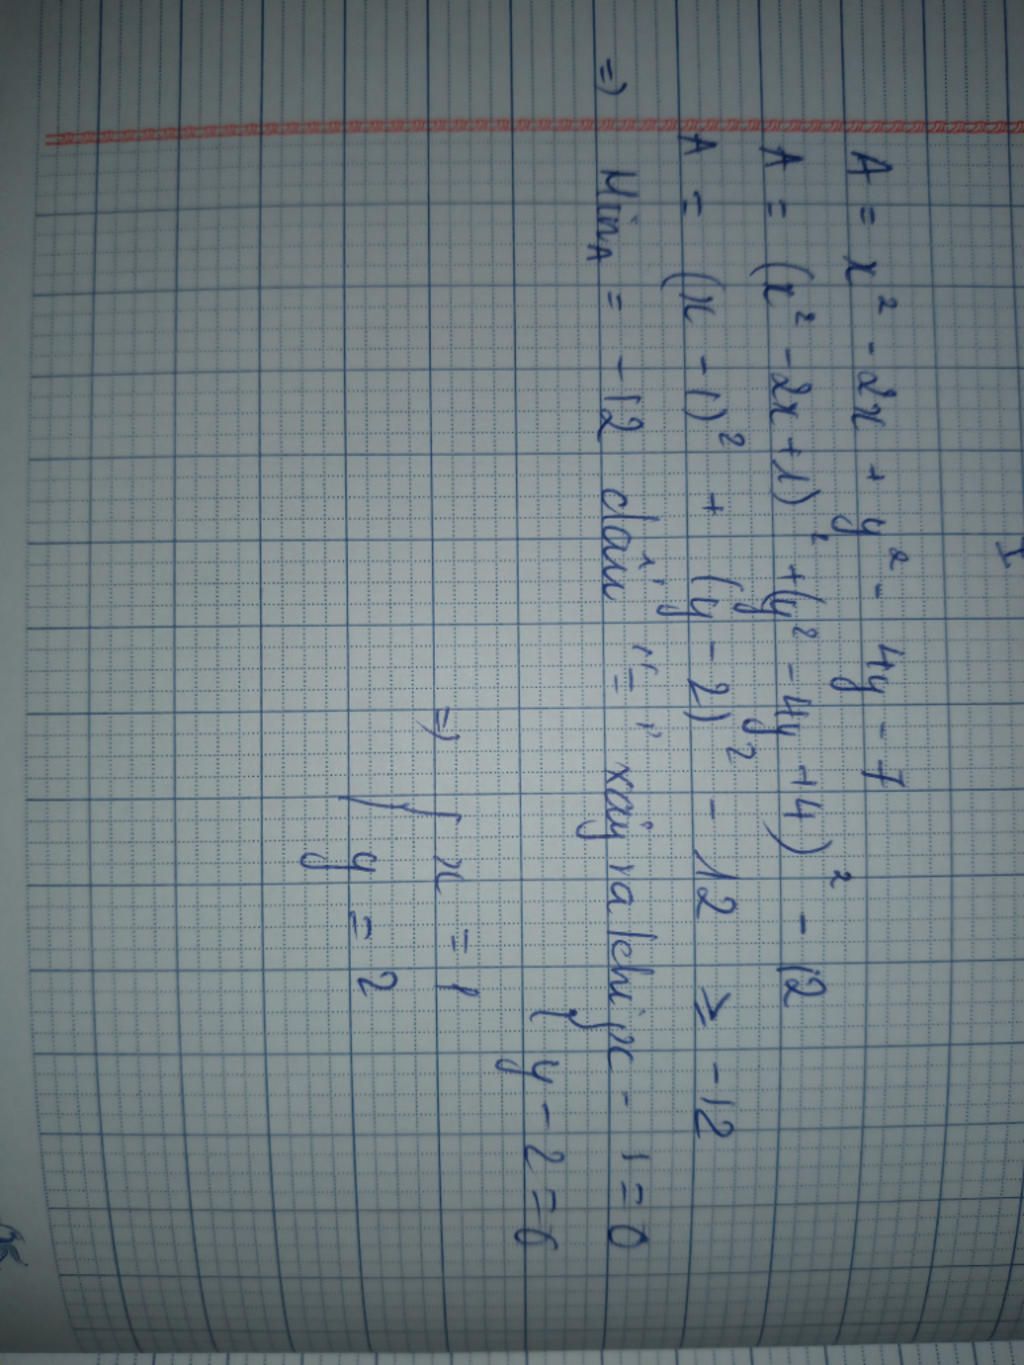 A = x² - 2x + y² - 4y - 7
A = (x² - 2x + 1)² + (y² - 4y + 4)² - 12
A = (x - 1)² + (y - 2)² - 12 ≥ -12
=) Min_A = -12 dấu "=" xảy ra khi { x - 1 = 0
y - 2 = 0
=) { x = 1
y = 2